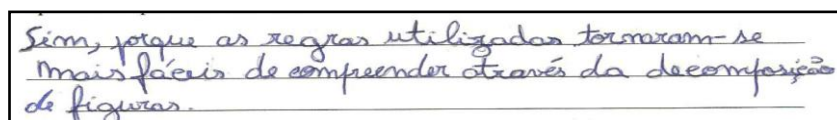 Sim, porque as regras utilizadas tornaram-se
mais fáceis de compreender através da decomposição
de figuras.